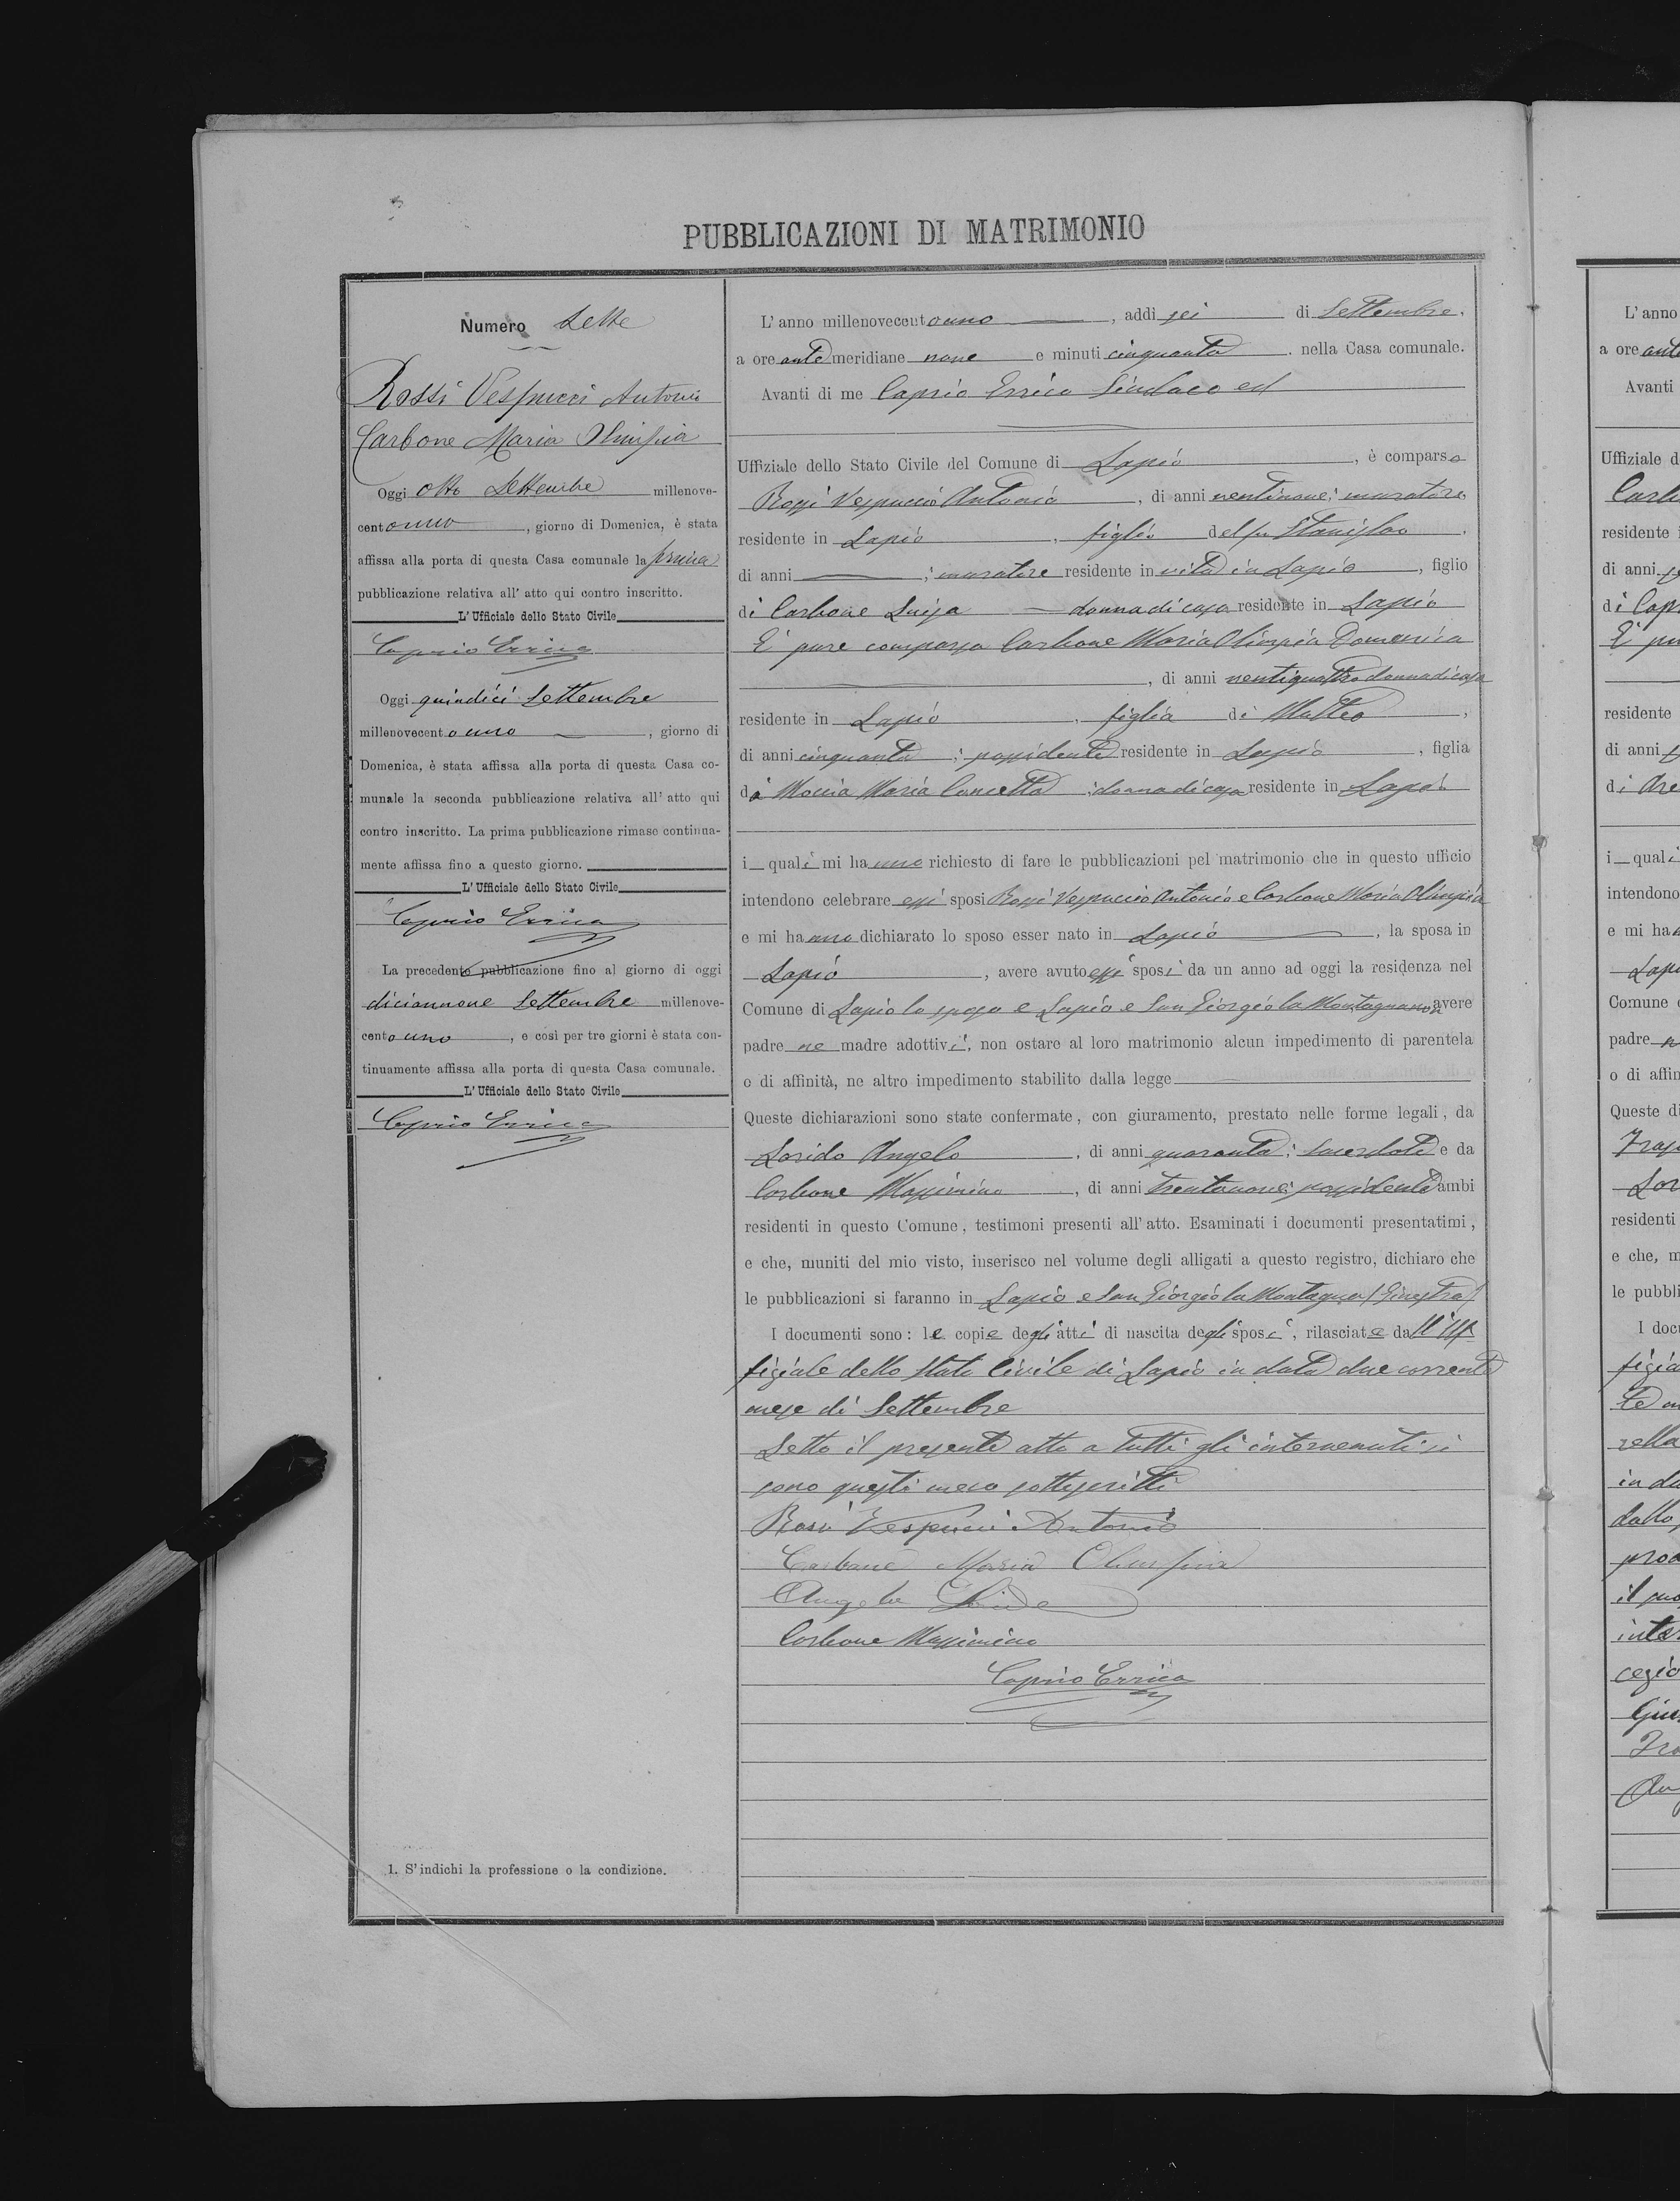 PUBBLICAZIONI DI MATRIMONIO
Numero Sette
Rossi Vespucci Antonio
Carbone Maria Olimpia
Oggi otto Settembre millenove-
cento uno, giorno di Domenica, è stata
affissa alla porta di questa Casa comunale la prima
pubblicazione relativa all' atto qui contro inscritto.
L' Ufficiale dello Stato Civile
Caprio Errico
Oggi quindici Settembre
millenovecento uno, giorno di
Domenica, è stata affissa alla porta di questa Casa co-
munale la seconda pubblicazione relativa all' atto qui
contro inscritto. La prima pubblicazione rimase continua-
mente affissa fino a questo giorno.
L' Ufficiale dello Stato Civile
Caprio Errico
La precedente pubblicazione fino al giorno di oggi
diciannove Settembre millenove-
cento uno, e così per tre giorni è stata con-
tinuamente affissa alla porta di questa Casa comunale.
L' Ufficiale dello Stato Civile
Caprio Errico
1. S' indichi la professione o la condizione.
L' anno millenovecentouno, addì sei di Settembre,
a ore antemeridiane nove e minuti cinquanta. nella Casa comunale.
Avanti di me Caprio Errico Sindaco ed
Uffiziale dello Stato Civile del Comune di Lapio, è comparso
Rossi Vespuccio Antonio, di anni ventinove; muratore
residente in Lapio, figlio del fu Stanislao,
di anni ; muratore residente in vita in Lapio, figlio
di Carbone Luisa donna di casa residente in Lapio
E' pure comparsa Carbone Maria Olimpia Domenica
, di anni ventiquattro donna di casa
residente in Lapio, figlia di Matteo,
di anni cinquanta; possidente residente in Lapio, figlia
di Moccia Maria Concetta; donna di casa residente in Lapio
i quali mi hanno richiesto di fare le pubblicazioni pel matrimonio che in questo ufficio
intendono celebrare essi sposi Rossi Vespuccio Antonio e Carbone Maria Olimpia
e mi hanno dichiarato lo sposo esser nato in Lapio, la sposa in
Lapio, avere avuto essi sposi da un anno ad oggi la residenza nel
Comune di Lapio la sposa e Lapio e San Giorgio la Montagna non avere
padre ne madre adottivi, non ostare al loro matrimonio alcun impedimento di parentela
o di affinità, ne altro impedimento stabilito dalla legge
Queste dichiarazioni sono state confermate, con giuramento, prestato nelle forme legali, da
Lorido Angelo, di anni quaranta; sacerdote e da
Carbone Massimino, di anni trentanove; possidente ambi
residenti in questo Comune, testimoni presenti all' atto. Esaminati i documenti presentatimi,
e che, muniti del mio visto, inserisco nel volume degli alligati a questo registro, dichiaro che
le pubblicazioni si faranno in Lapio e San Giorgio la Montagna (Ginestra)
I documenti sono: le copie degli atti di nascita degli sposi, rilasciate dall'Uf
fiziale dello Stato Civile di Lapio in data due corrente
mese di Settembre
Letto il presente atto a tutti gli intervenuti si
sono questi meco sottoscritti
Rossi Vespucci Antonio
Carbone Maria Olimpia
Angelo
Carbone Massimino
Caprio Errico
L' anno
a ore ante
Avanti
Uffiziale d
Carb
residente i
di anni
di Capr
E' pu
residente
di anni
di Are
i quali
intendono
e mi han
Lapi
Comune
padre n
o di affin
Queste di
Lor
residenti
e che, m
le pubbli
I docu
fizia
in da
dallo